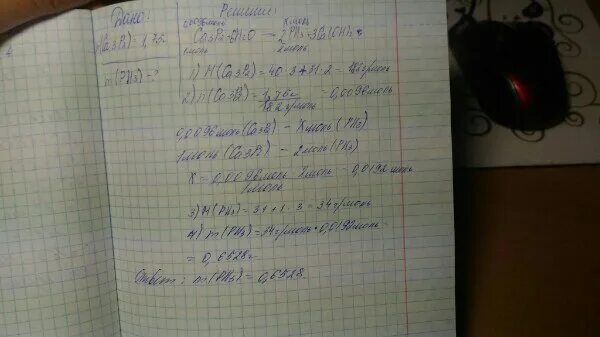 Дано:
m(Ca3P2) = 1,75г
m(PH3) - ?
Решение:
0,0096моль Xмоль
Ca3P2+6H2O → 2PH3+3Ca(OH)2
1моль 2моль
1) M(Ca3P2) = 40·3+31·2 = 182г/моль
2) n(Ca3P2) = 1,75г / 182г/моль = 0,0096моль
0,0096моль (Ca3P2) - Xмоль (PH3)
1моль (Ca3P2) - 2моль (PH3)
X = 0,0096моль · 2моль / 1моль = 0,0192моль
3) M(PH3) = 31+1·3 = 34г/моль
4) m(PH3) = 34г/моль · 0,0192моль =
= 0,6528г
Ответ: m(PH3) = 0,6528